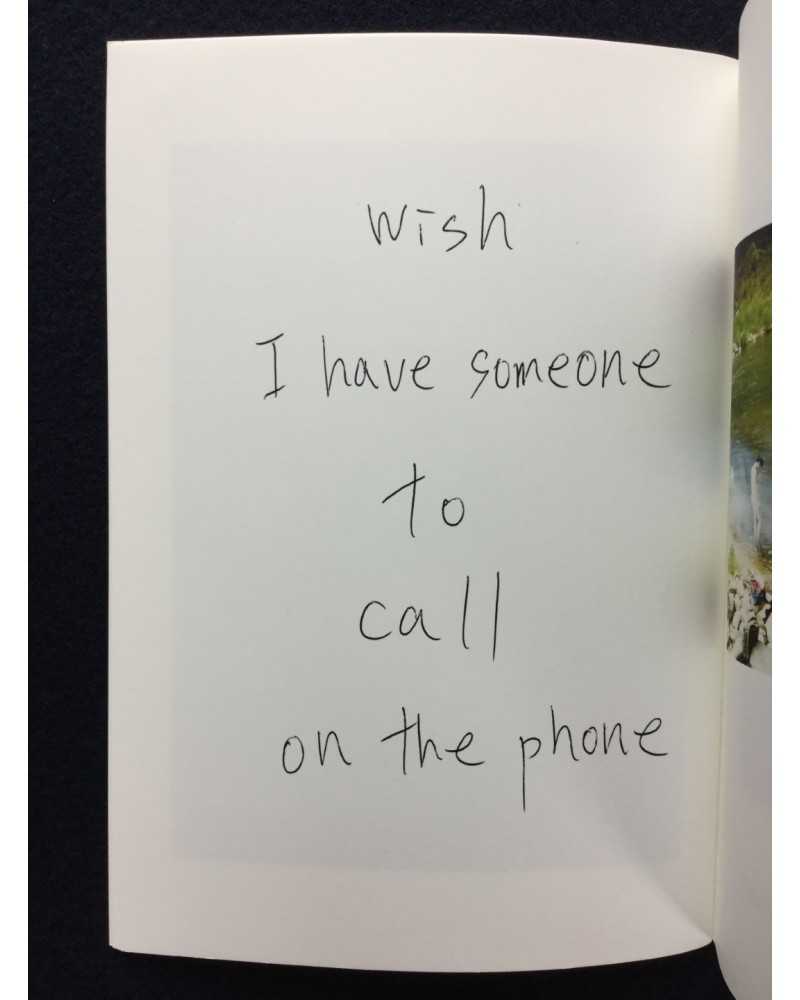 wish
I have someone
to
call
on the phone